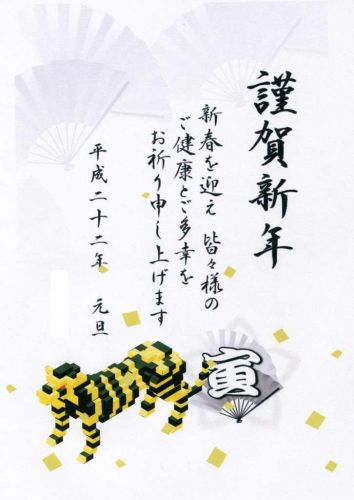 謹賀新年
新春を迎え 皆々様の
ご健康とご多幸を
お祈り申し上げます
平成二十二年 元旦
寅